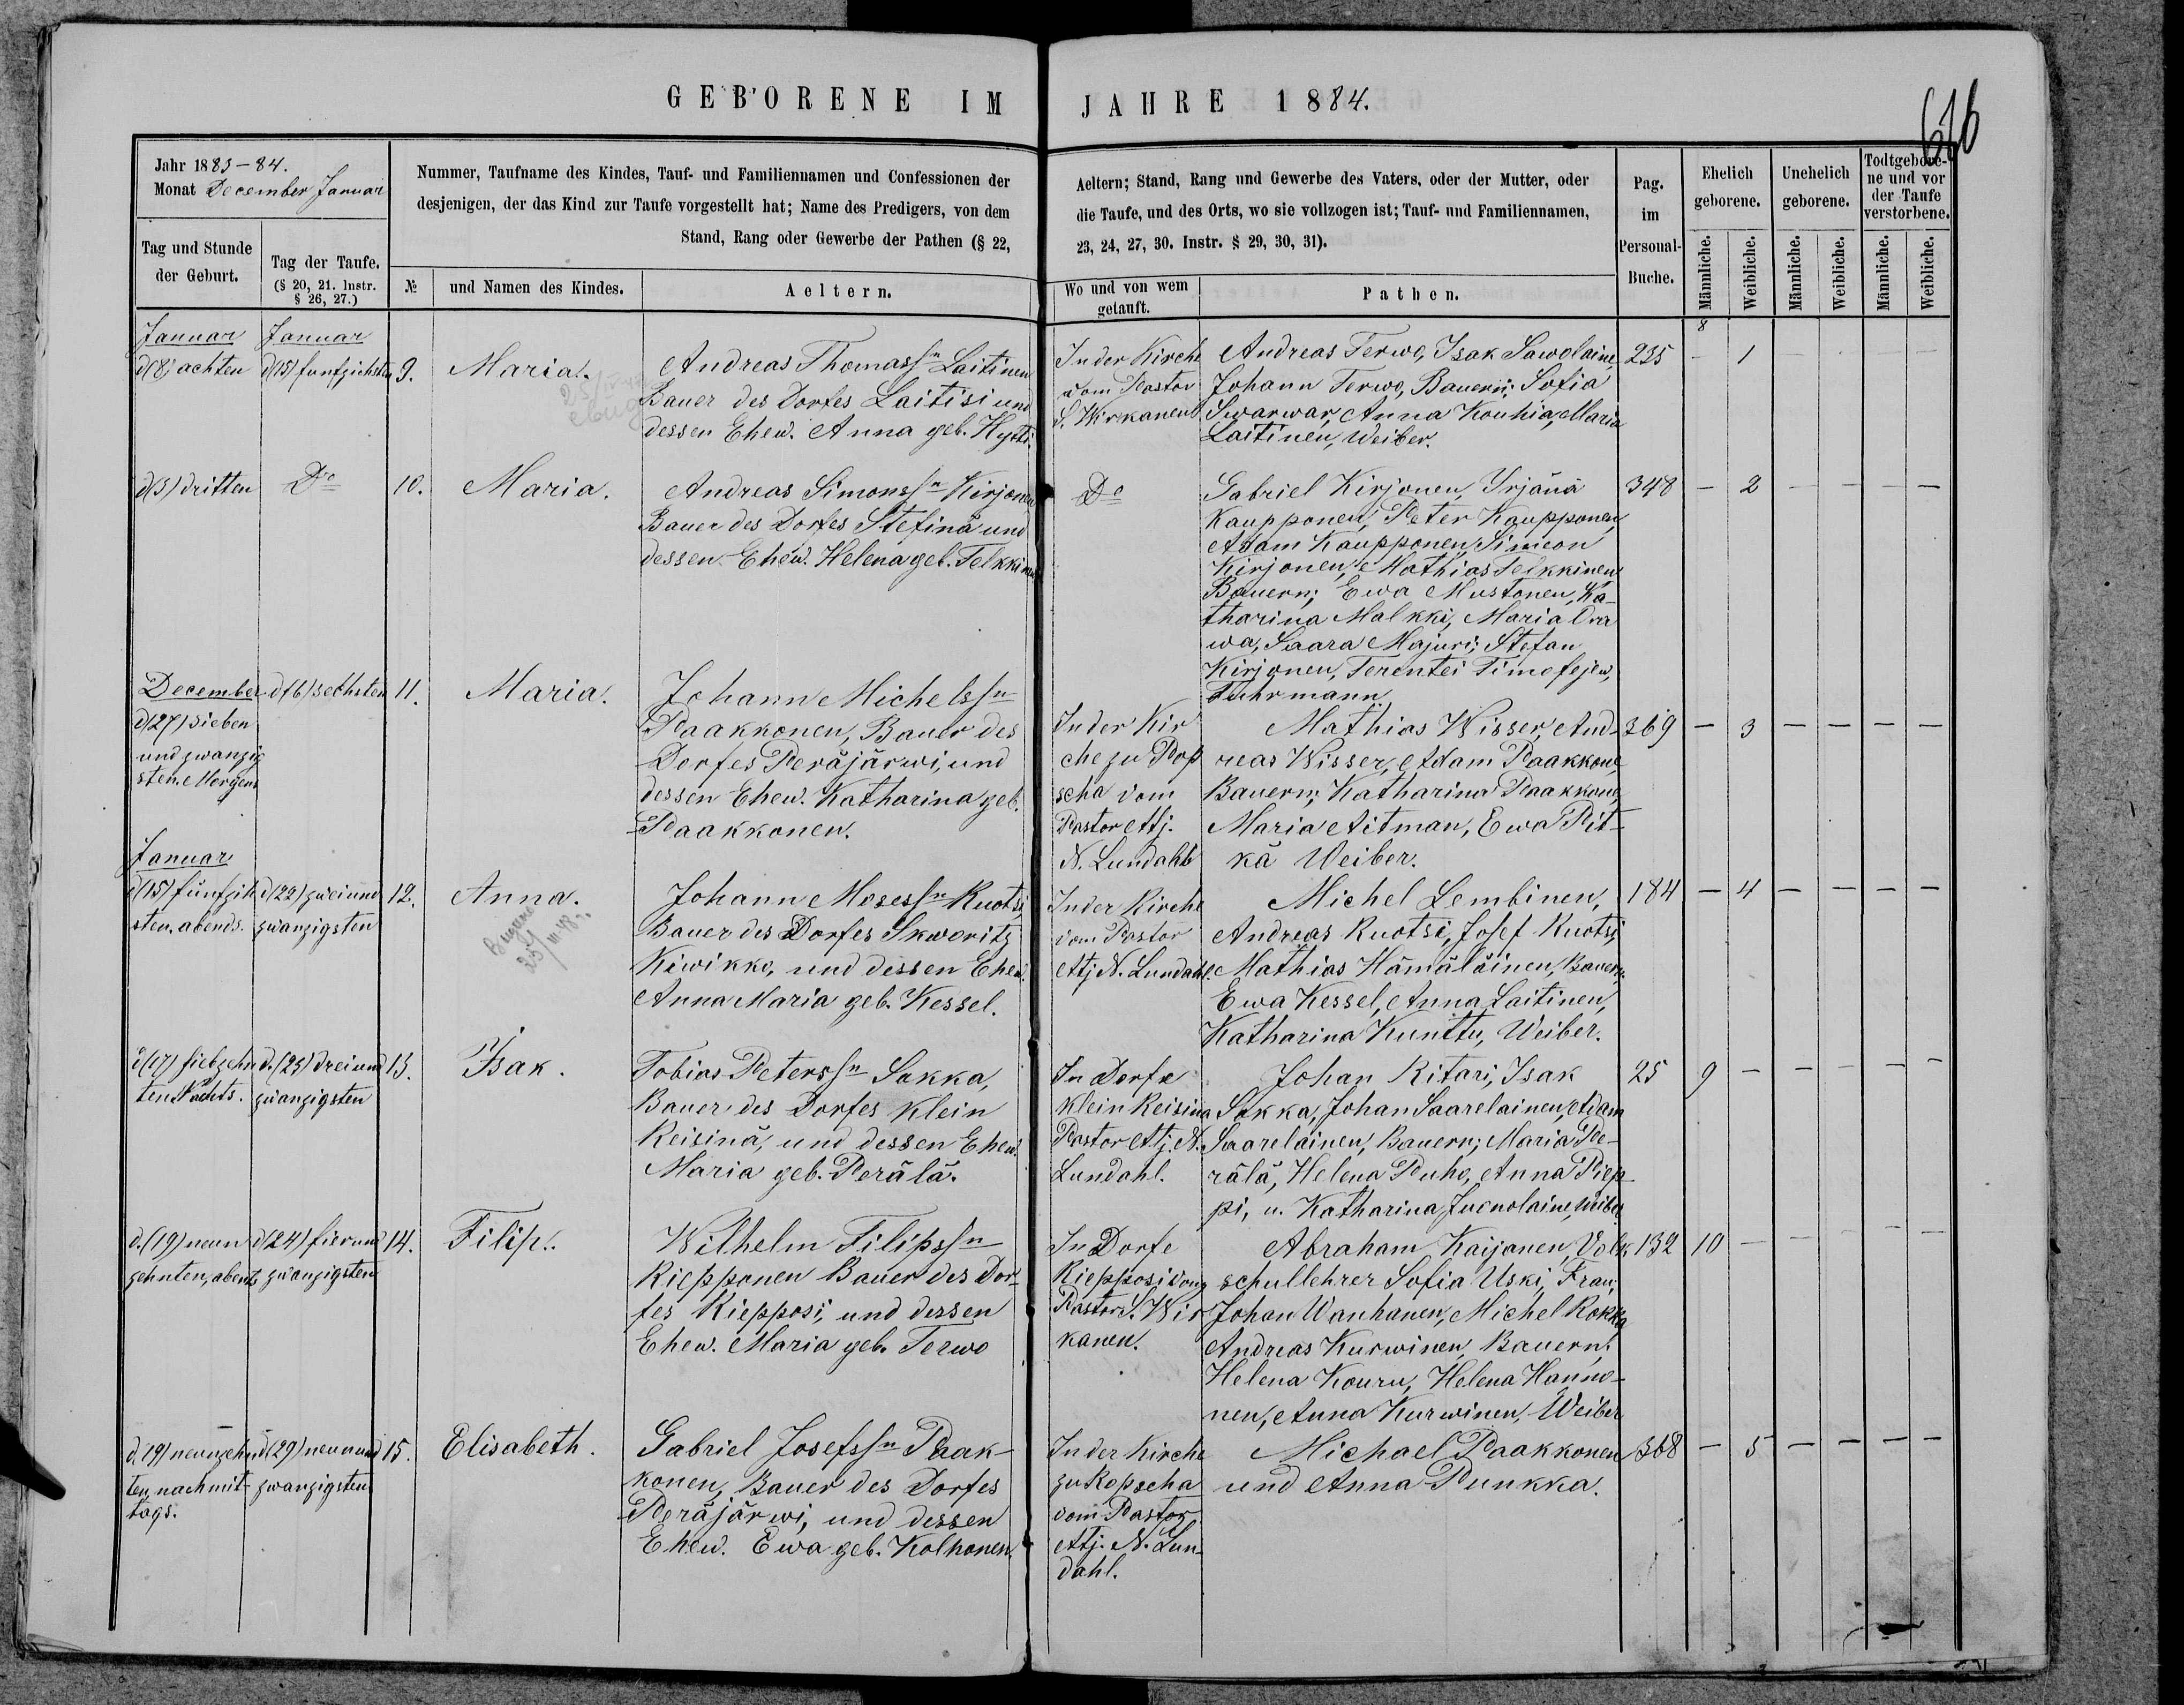 GEBORENE IM JAHRE 1884.
Jahr 1883-84.
Monat December Januar
Nummer, Taufname des Kindes, Tauf- und Familiennamen und Confessionen der
desjenigen, der das Kind zur Taufe vorgestellt hat; Name des Predigers, von dem
Stand, Rang oder Gewerbe der Pathen (§ 22,
Aeltern; Stand, Rang und Gewerbe des Vaters, oder der Mutter, oder
die Taufe, und des Orts, wo sie vollzogen ist; Tauf- und Familiennamen,
23, 24, 27, 30. Instr. § 29, 30, 31).
Tag und Stunde
der Geburt.
Tag der Taufe.
(§ 20, 21. Instr.
§ 26, 27.)
№
und Namen des Kindes.
Aeltern.
Wo und von wem
getauft.
Pathen.
Pag.
im
Personal-
Buche.
Ehelich
geborene.
Unehelich
geborene.
Todtgebore-
ne und vor
der Taufe
verstorbene.
Männliche.
Weibliche.
Männliche.
Weibliche.
Männliche.
Weibliche.
Januar
d(8) achten
Januar
d(15) funfzichsten
9.
Maria.
Andreas Thomasſn Laitinen
Bauer des Dorfes Laitisi und
dessen Ehew. Anna geb. Hytti.
In der Kirche
vom Pastor
S. Wirkanen
Andreas Terwo, Isak Sawolaine,
Johann Terwo, Bauern; Sofia
Swarwar, Anna Kouhia, Maria
Laitinen, Weiber.
235
8
- 1 - - -
d(3) dritten
Do
10.
Maria.
Andreas Simonsſn Kirjonen
Bauer des Dorfes Stefinä und
dessen Ehew. Helena geb. Telkkinen
Do
Gabriel Kirjonen, Yrjänä
Kaupponen, Peter Kaupponen,
Adam Kaupponen, Simeon
Kirjonen, Mathias Telkkinen
Bauern; Ewa Mustonen, Ka-
tharina Malkki, Maria Ora
wa, Saara Majuri; Stefan
Kirjonen, Terentei Timofejew,
Fuhrmann.
348
- 2 - - - -
December
d(27) sieben
und zwanzig
sten. Morgens
d(6) sechsten
11.
Maria.
Johann Michelsſn
Paakkonen, Bauer des
Dorfes Peräjärwi, und
dessen Ehew. Katharina geb.
Paakkonen.
In der Kir
che zu Rop
scha vom
Pastor Attj.
N. Lundahl
Mathias Wisser, And-
reas Wisser, Adam Paakkone,
Bauern; Katharina Paakkone,
Maria Aitman, Ewa Pit-
kä Weiber.
369
- 3 - - - -
Januar
d(15) fünfzih
sten, abends.
d(22) zwei und
zwanzigsten
12.
Anna.
Johann Mosesſn Ruotsi,
Bauer des Dorfes Skworitz
Kiwikko, und dessen Ehew.
Anna Maria geb. Kessel.
In der Kirche
vom Pastor
Attj N. Lundahl.
Michel Lembinen,
Andreas Ruotsi, Josef Ruotsi,
Mathias Hämäläinen, Bauern;
Ewa Kessel, Anna Laitinen,
Katharina Kunttu, Weiber.
184
- 4 - - - -
d(17) siebzehn
ten Nachts.
d.(23) drei und
zwanzigsten
13.
Isak.
Tobias Petersſn Sakka,
Bauer des Dorfes Klein
Reisinä, und dessen Ehew.
Maria geb. Perälä.
In Dorfe
Klein Reisina
Pastor Attj. N.
Lundahl.
Johan Ritari, Isak
Sakka, Johan Saarelainen, Adam
Saarelainen, Bauern; Maria Pe-
rälä, Helena Puho, Anna Piep
pi, u. Katharina
25
9 - - - - -
d.(19) neun
zehnten, abents
d(24) fier und
zwanzigsten
14.
Filip.
Wilhelm Filipsſn
Riepponen Bauer des Dor-
fes Riepposi, und dessen
Ehew. Maria geb. Terwo
In Dorfe
Riepposi vom
Pastor S. Wir
kanen.
Abraham Kaijanen, Volk
schullehrer Sofia Uski, Frau;
Johan Wanhanen, Michel Rokka,
Andreas Kurwinen, Bauern;
Helena Kouru, Helena Hanno-
nen, Anna Kurwinen, Weiber
132
10 - - - - -
d.19) neunzehn
ten, nachmit-
tags.
d(29) neun und
zwanzigsten
15.
Elisabeth.
Gabriel Josefsſn Paak-
konen, Bauer des Dorfes
Peräjärwi, und dessen
Ehew. Ewa geb. Kolhonen.
In der Kirche
zu Ropscha
vom Pastor
Attj. N. Lun
dahl.
Michael Paakkonen
und Anna Punkka.
368
- 5 - - - -